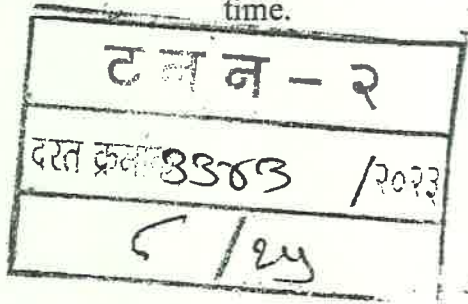 time.
ट न न - २
दस्त क्रमांक ३३४३ /२०२३
८ / २५